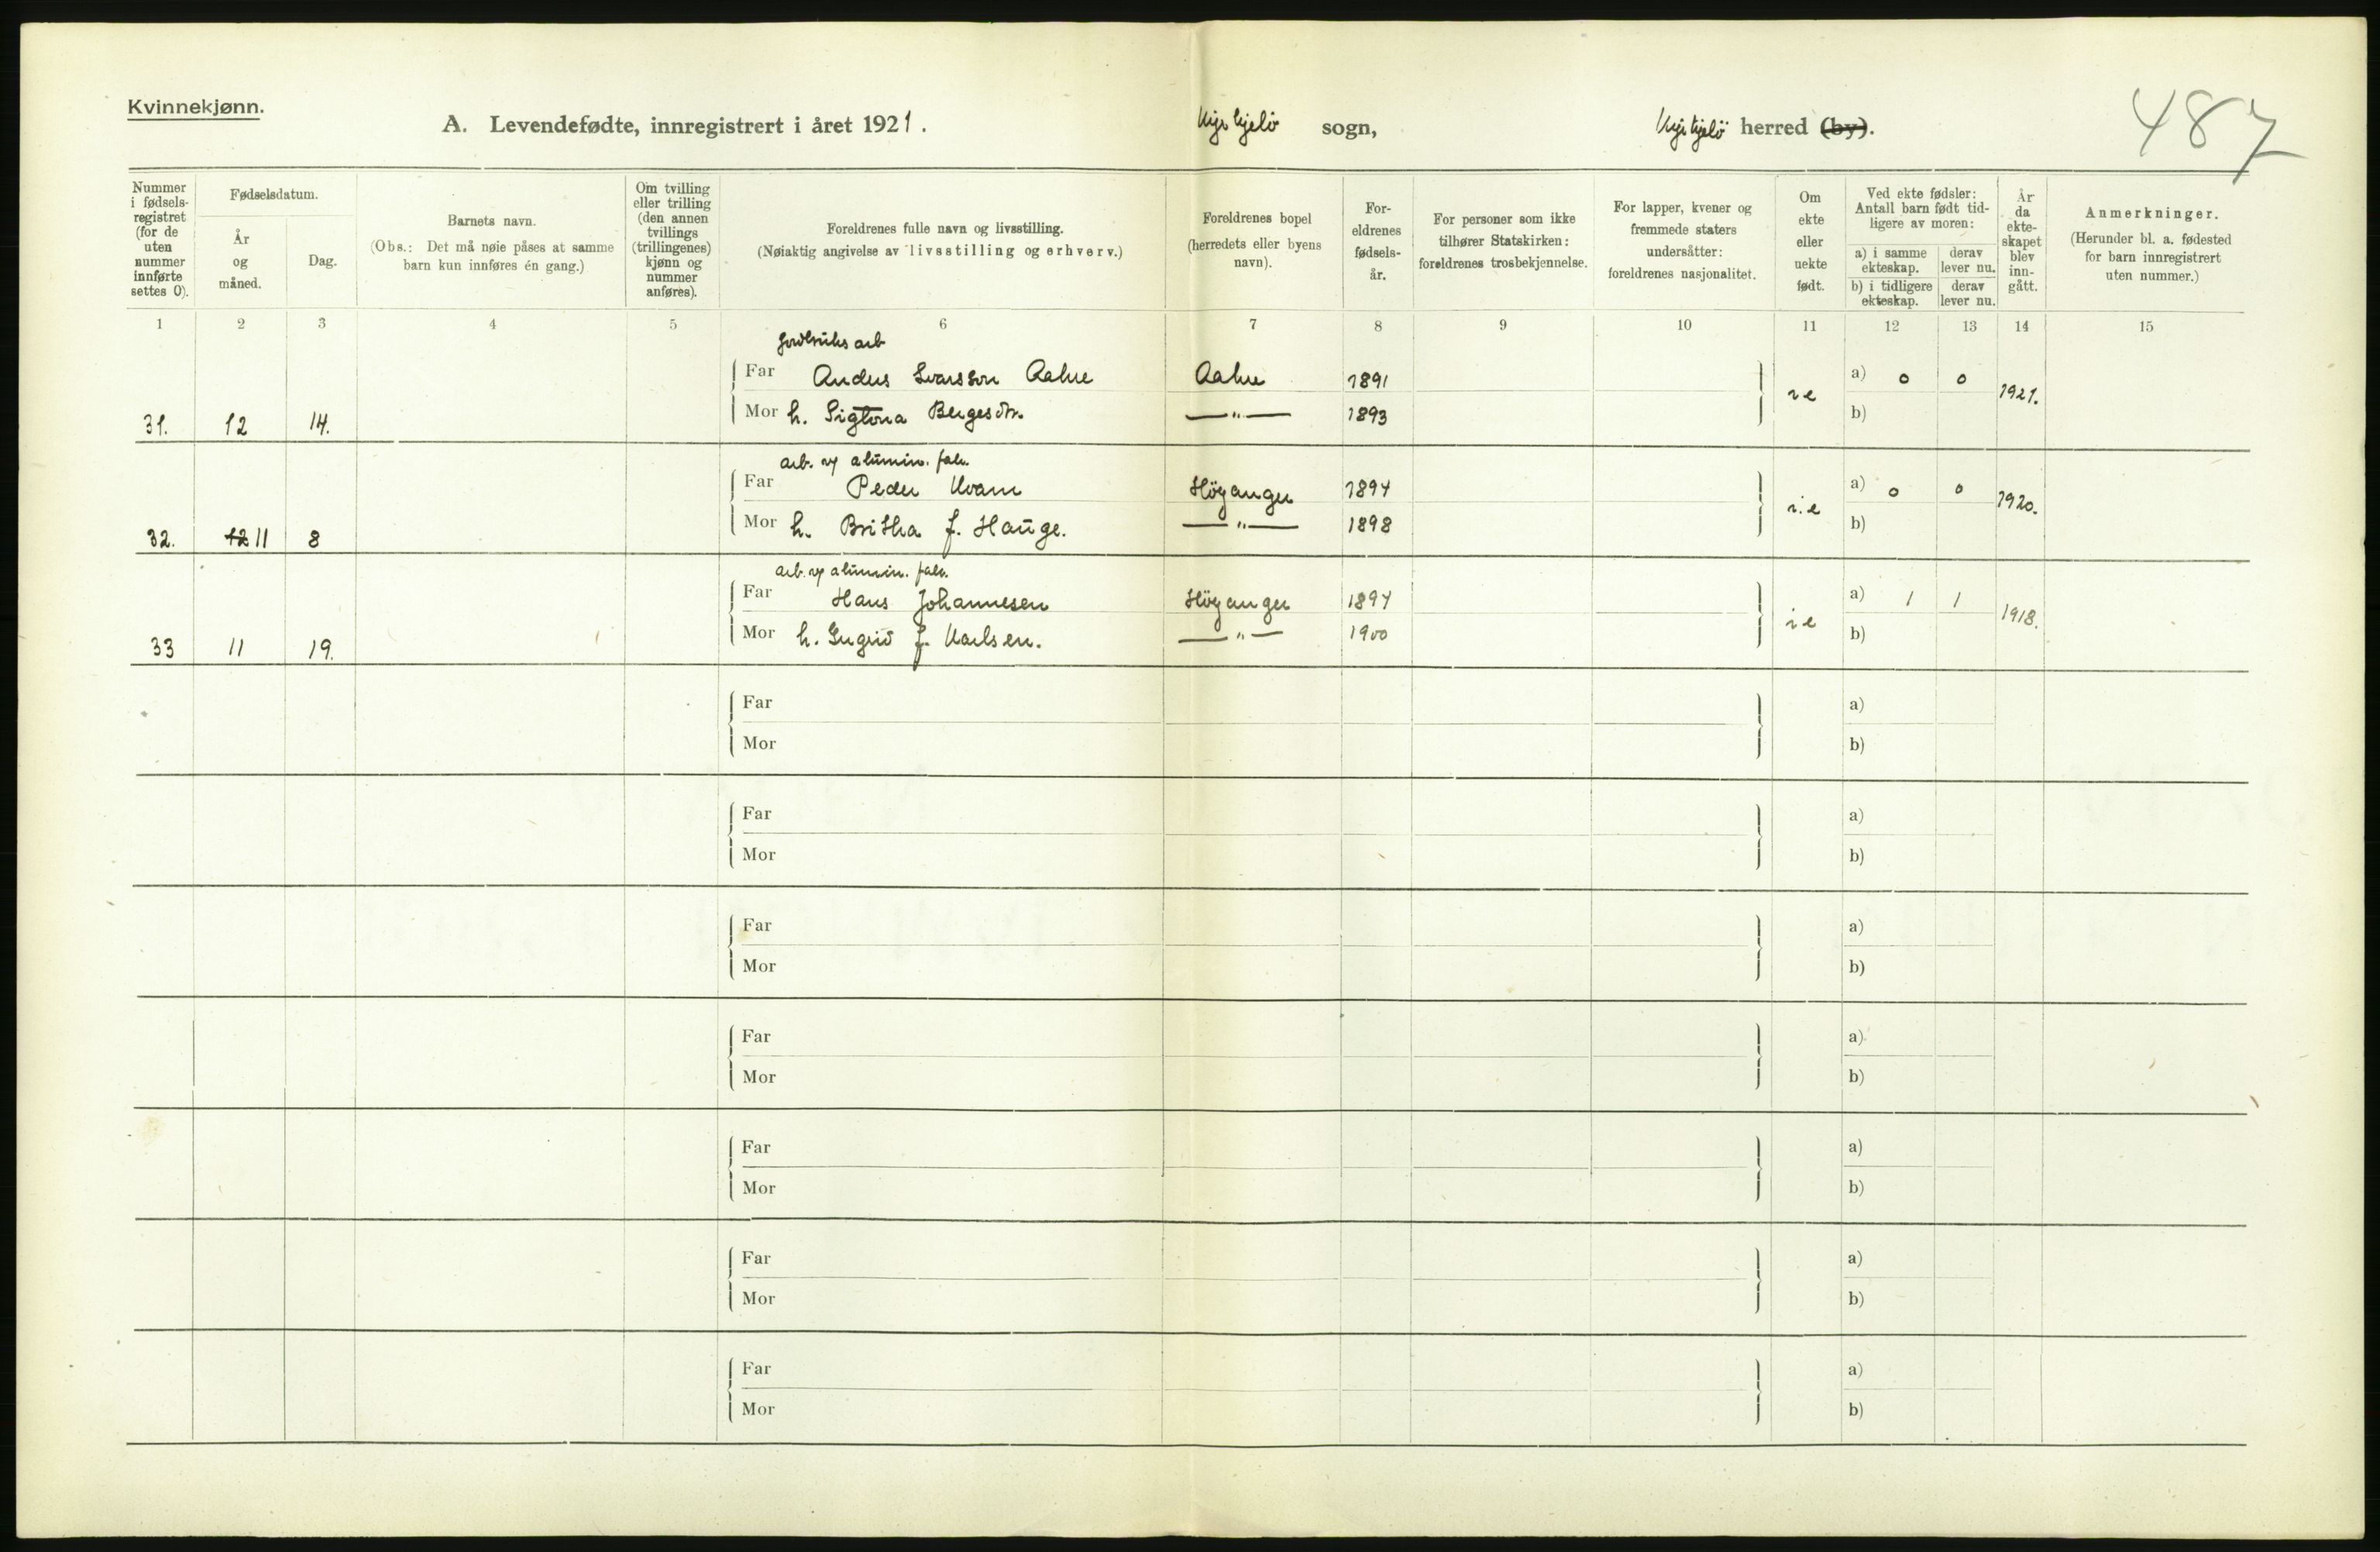 Kvinnekjønn.
A. Levendefødte, innregistrert i året 1921. Kyrkjebö sogn, Kyrkjebö herred (by).
487
Nummer i fødsels-registret (for de uten nummer innførte settes 0).
Fødselsdatum.
År og måned.
Dag.
Barnets navn.
(Obs.: Det må nøie påses at samme barn kun innføres én gang.)
Om tvilling eller trilling (den annen tvillings (trillingenes) kjønn og nummer anføres).
Foreldrenes fulle navn og livsstilling.
(Nøiaktig angivelse av livsstilling og erhverv.)
Foreldrenes bopel (herredets eller byens navn).
For-eldrenes fødsels-år.
For personer som ikke tilhører Statskirken: foreldrenes trosbekjennelse.
For lapper, kvener og fremmede staters undersåtter: foreldrenes nasjonalitet.
Om ekte eller uekte født.
Ved ekte fødsler: Antall barn født tid-ligere av moren:
a) i samme ekteskap. derav lever nu.
b) i tidligere ekteskap. derav lever nu.
År da ekte-skapet blev inn-gått.
Anmerkninger.
(Herunder bl. a. fødested for barn innregistrert uten nummer.)
1 2 3 4 5 6 7 8 9 10 11 12 13 14 15
jordbruks arb
Far Anders Ivarsson 1891 a) 0 0
31. 12 14. Mor h. Bergesdtr. —"— 1893 i e b) 1921.
arb. v/ alumin. fabr.
Far Peder Kvam Höyanger 1894 a) 0 0
32. 12 11 8 Mor h. Britha f. Hauge. —"— 1898 i.e b) 1920.
arb. v/ alumin. fabr.
Far Hans Johannesen Höyanger 1894 a) 1 1
33 11 19. Mor h. Ingrid f. Karlsen. —"— 1900 i e b) 1918.
Far a)
Mor b)
Far a)
Mor b)
Far a)
Mor b)
Far a)
Mor b)
Far a)
Mor b)
Far a)
Mor b)
Far a)
Mor b)